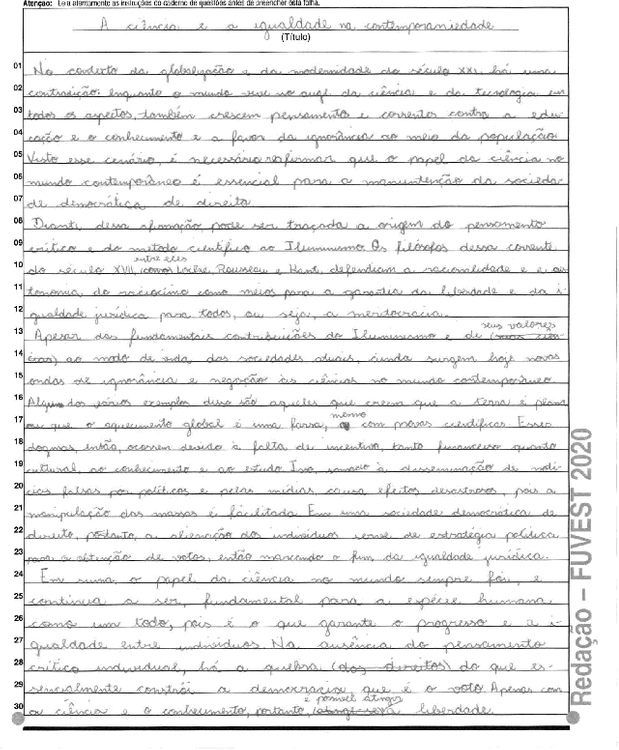 Atenção: Leia atentamente as instruções do caderno de questões antes de preencher esta folha.
A ciência e a igualdade na contemporaneidade
(Título)
01 No contexto da globalização e da modernidade do século XXI, há uma
02 contradição: enquanto o mundo vive no auge da ciência e da tecnologia em
03 todos os aspectos, também crescem pensamentos e correntes contra a edu-
04 cação e o conhecimento e a favor da ignorância no meio da população.
05 Visto esse cenário, é necessário reafirmar que o papel da ciência no
06 mundo contemporâneo é essencial para a manuntenção da socieda-
07 de democrática de direito.
08 Diante dessa afirmação pode ser traçada a origem do pensamento
09 crítico e do método científico ao Iluminismo. Os filósofos dessa corrente
10 do século XVII, entre eles Locke, Rousseau e Kant, defendiam a racionalidade e a au-
11 tonomia do raciocínio como meios para a garantia da liberdade e da i-
12 gualdade jurídica para todos, ou seja, a meritocracia.
13 Apesar das fundamentais contribuições do Iluminismo e de seus valores
14 ao modo de vida das sociedades atuais, ainda surgem hoje novas
15 ondas de ignorância e negação às ciências no mundo contemporâneo.
16 Alguns dos vários exemplos disso são aqueles que creem que a terra é plana
17 ou que o aquecimento global é uma farsa, mesmo com provas científicas. Esses
18 dogmas, então, ocorrem devido à falta de incentivo, tanto financeiro quanto
19 cultural, ao conhecimento e ao estudo. Isso, somado à disseminação de notí-
20 cias falsas por políticos e pelas mídias causa efeitos desastrosos, pois a
21 manipulação das massas é facilitada. Em uma sociedade democrática de
22 direito, portanto, a alienação dos indivíduos serve de estratégia política
23 para a obtenção de votos, então marcando o fim da igualdade jurídica.
24 Em suma, o papel da ciência no mundo sempre foi, e
25 continua a ser, fundamental para a espécie humana
26 como um todo, pois é o que garante o progresso e a i-
27 gualdade entre indivíduos. Na ausência do pensamento
28 crítico individual, há a quebra (dos direitos) do que es-
29 sencialmente constrói a democracia que é o voto. Apenas com
30 a ciência e o conhecimento, portanto, é possível atingir a liberdade.
Redação – FUVEST 2020